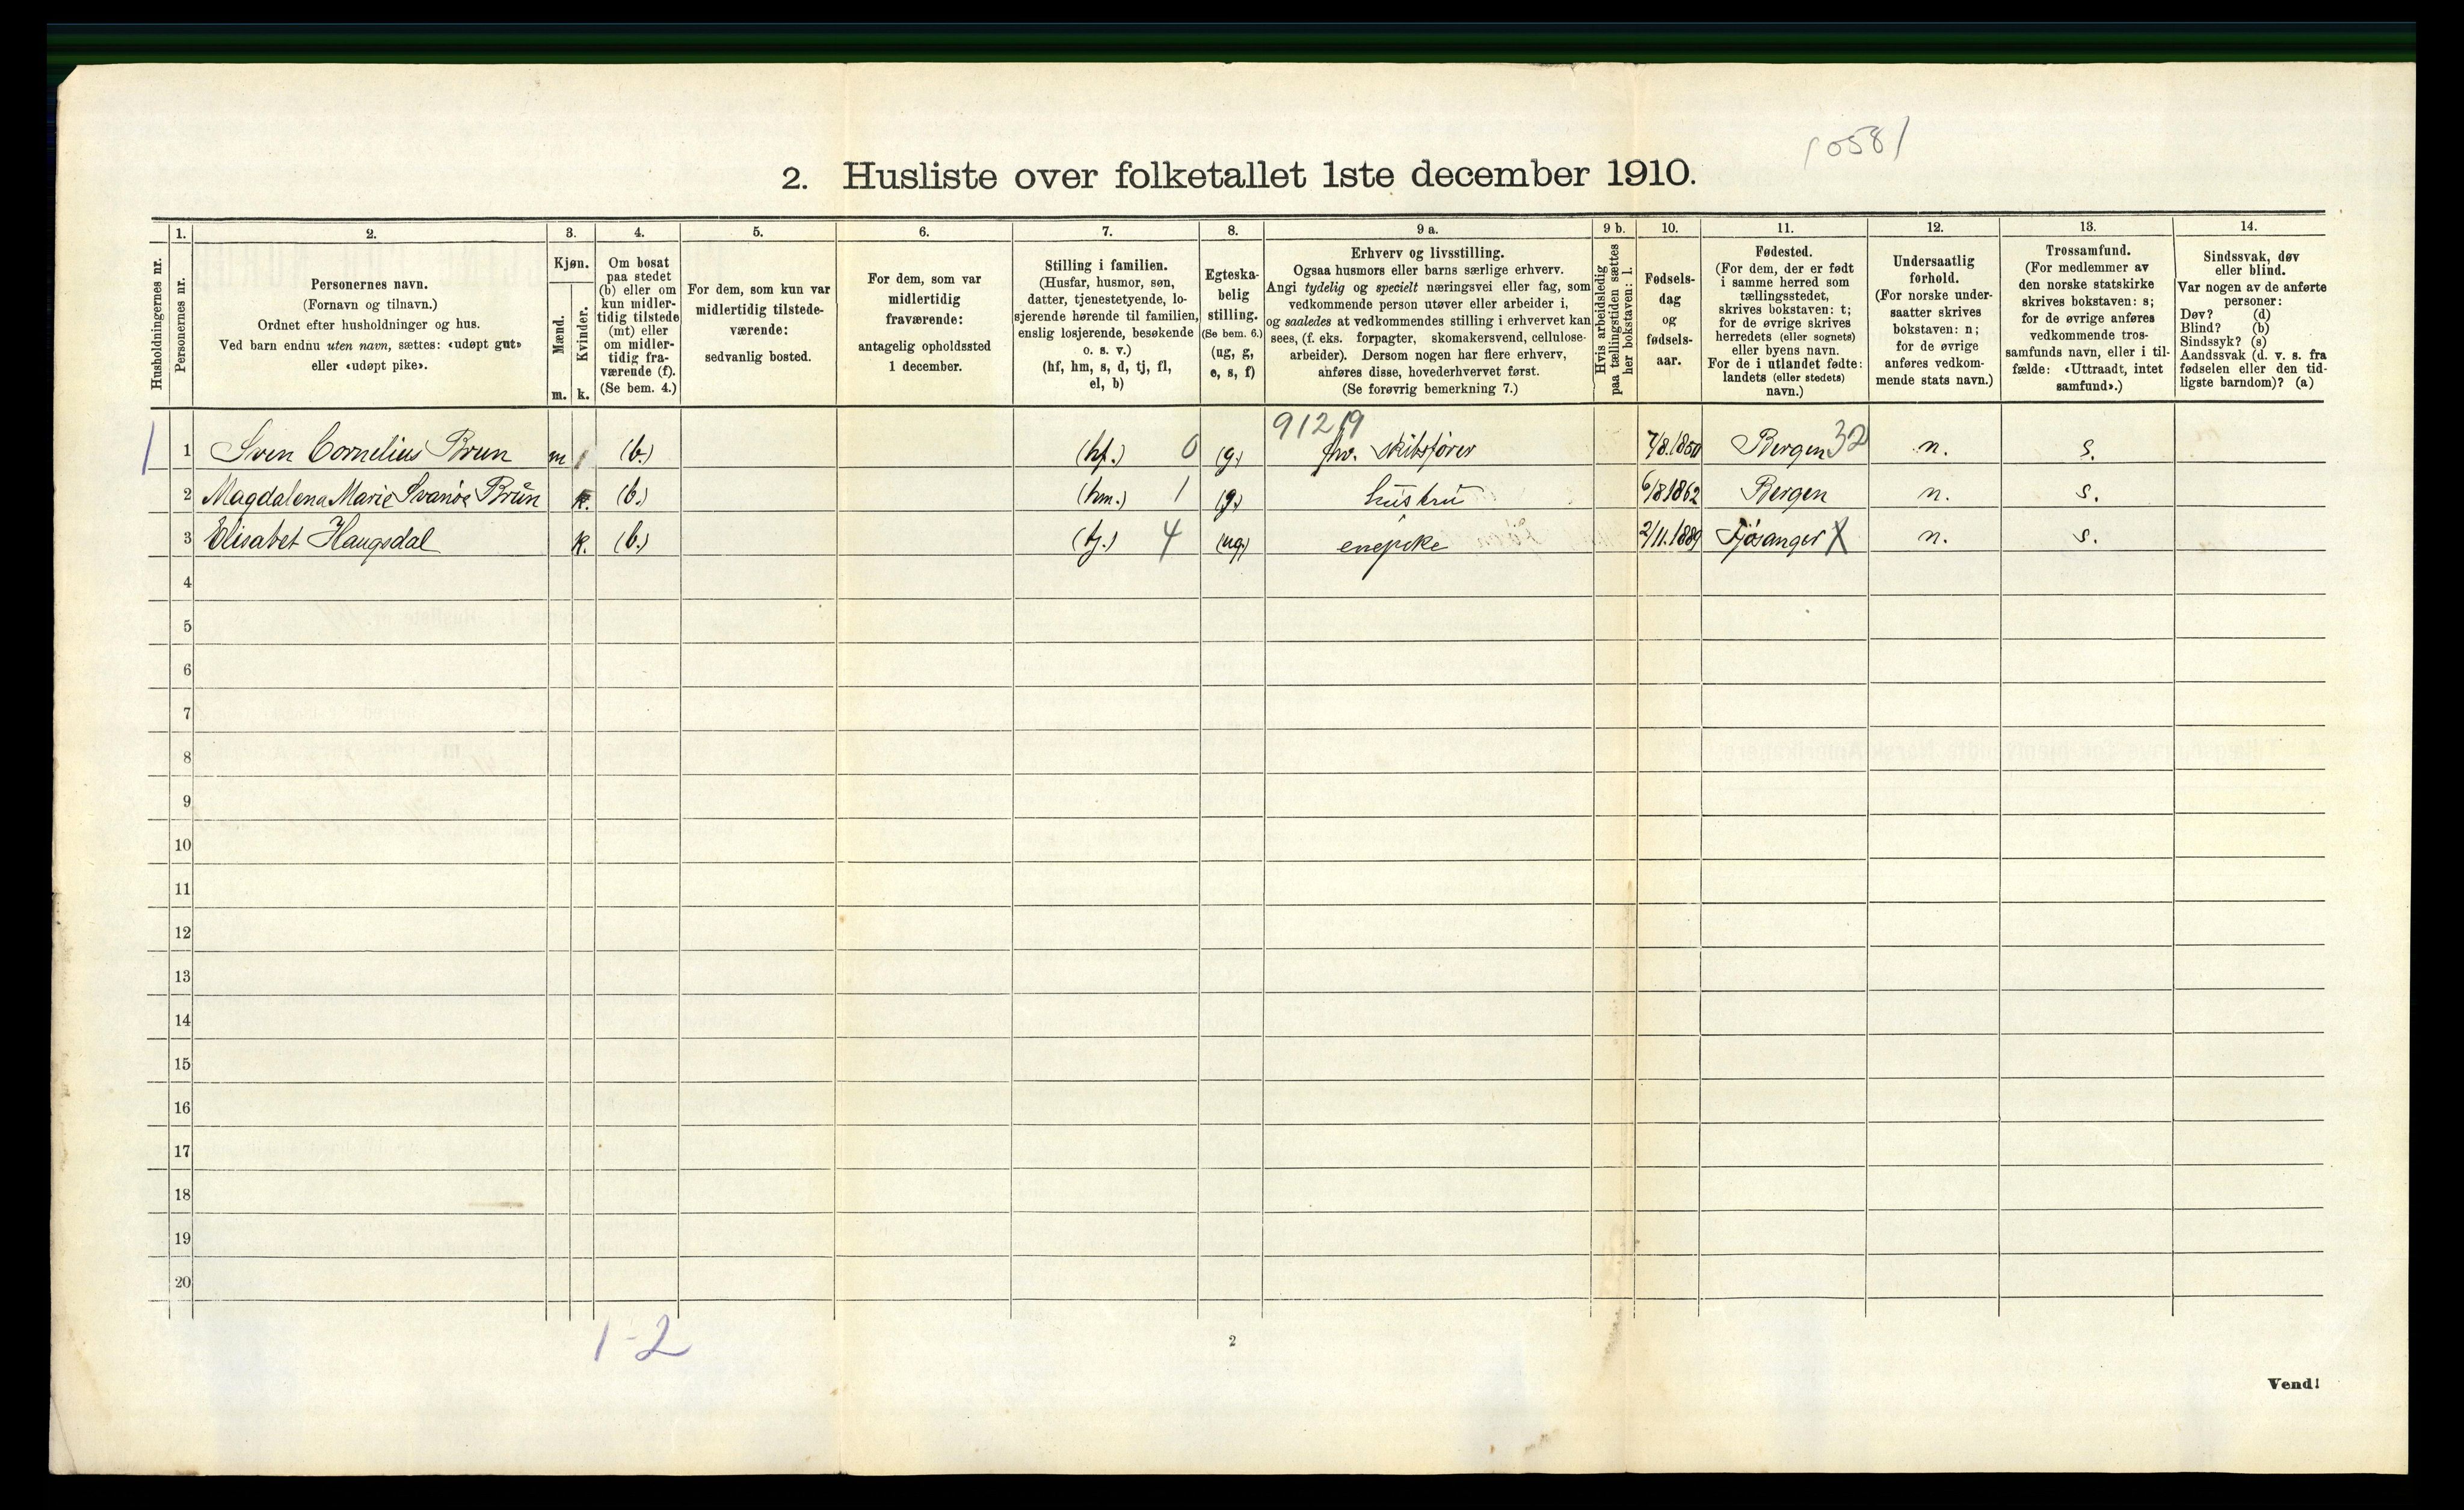 1058 1
2. Husliste over folketallet 1ste december 1910.
1. 2. 3. 4. 5. 6. 7. 8. 9 a. 9 b. 10. 11. 12. 13. 14.
Husholdningernes nr.
Personernes nr.
Personernes navn.
(Fornavn og tilnavn.)
Ordnet efter husholdninger og hus.
Ved barn endnu uten navn, sættes: «udøpt gut»
eller «udøpt pike».
Kjøn.
Mænd.
Kvinder.
m. k.
Om bosat
paa stedet
(b) eller om
kun midler-
tidig tilstede
(mt) eller
om midler-
tidig fra-
værende (f).
(Se bem. 4.)
For dem, som kun var
midlertidig tilstede-
værende:
sedvanlig bosted.
For dem, som var
midlertidig
fraværende:
antagelig opholdssted
1 december.
Stilling i familien.
(Husfar, husmor, søn,
datter, tjenestetyende, lo-
sjerende hørende til familien,
enslig losjerende, besøkende
o. s. v.)
(hf, hm, s, d, tj, fl,
el, b)
Egteska-
belig
stilling.
(Se bem. 6.)
(ug, g,
e, s, f)
Erhverv og livsstilling.
Ogsaa husmors eller barns særlige erhverv.
Angi tydelig og specielt næringsvei eller fag, som
vedkommende person utøver eller arbeider i,
og saaledes at vedkommendes stilling i erhvervet kan
sees, (f. eks. forpagter, skomakersvend, cellulose-
arbeider). Dersom nogen har flere erhverv,
anføres disse, hovederhvervet først.
(Se forøvrig bemerkning 7.)
Hvis arbeidsledig
paa tællingstiden sættes
her bokstaven: l.
Fødsels-
dag
og
fødsels-
aar.
Fødested.
(For dem, der er født
i samme herred som
tællingsstedet,
skrives bokstaven: t;
for de øvrige skrives
herredets (eller sognets)
eller byens navn.
For de i utlandet fødte:
landets (eller stedets)
navn.)
Undersaatlig
forhold.
(For norske under-
saatter skrives
bokstaven: n;
for de øvrige
anføres vedkom-
mende stats navn.)
Trossamfund.
(For medlemmer av
den norske statskirke
skrives bokstaven: s;
for de øvrige anføres
vedkommende tros-
samfunds navn, eller i til-
fælde: «Uttraadt, intet
samfund».)
Sindssvak, døv
eller blind.
Var nogen av de anførte
personer:
Døv? (d)
Blind? (b)
Sindssyk? (s)
Aandssvak (d. v. s. fra
fødselen eller den tid-
ligste barndom)? (a)
91219
1 1 Sven Cornelius Brun m 1 (b.) (hf.) 0 (g.) fhv. skibsfører 7/8.1850 Bergen 32 n. s.
2 Magdalena Marie Svanöe Brun k. (b.) (hm.) 1 (g.) hustru 6/8 1862 Bergen n. s.
3 Elisabet Haugsdal k. (b.) (tj.) 4 (ug.) enepike 2/11.1889 Fjösanger X n. s.
4
5
6
7
8
9
10
11
12
13
14
15
16
17
18
19
20
1-2
2
Vend!